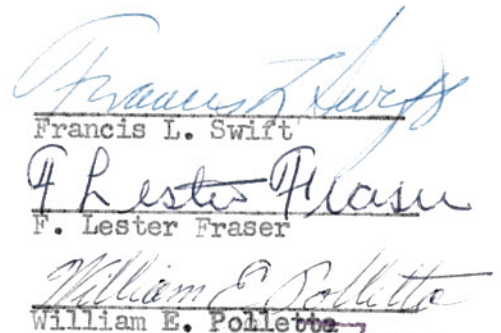 Francis L Swift
Francis L. Swift
F Lester Fraser
F. Lester Fraser
William E Polletta
William E. Polletta